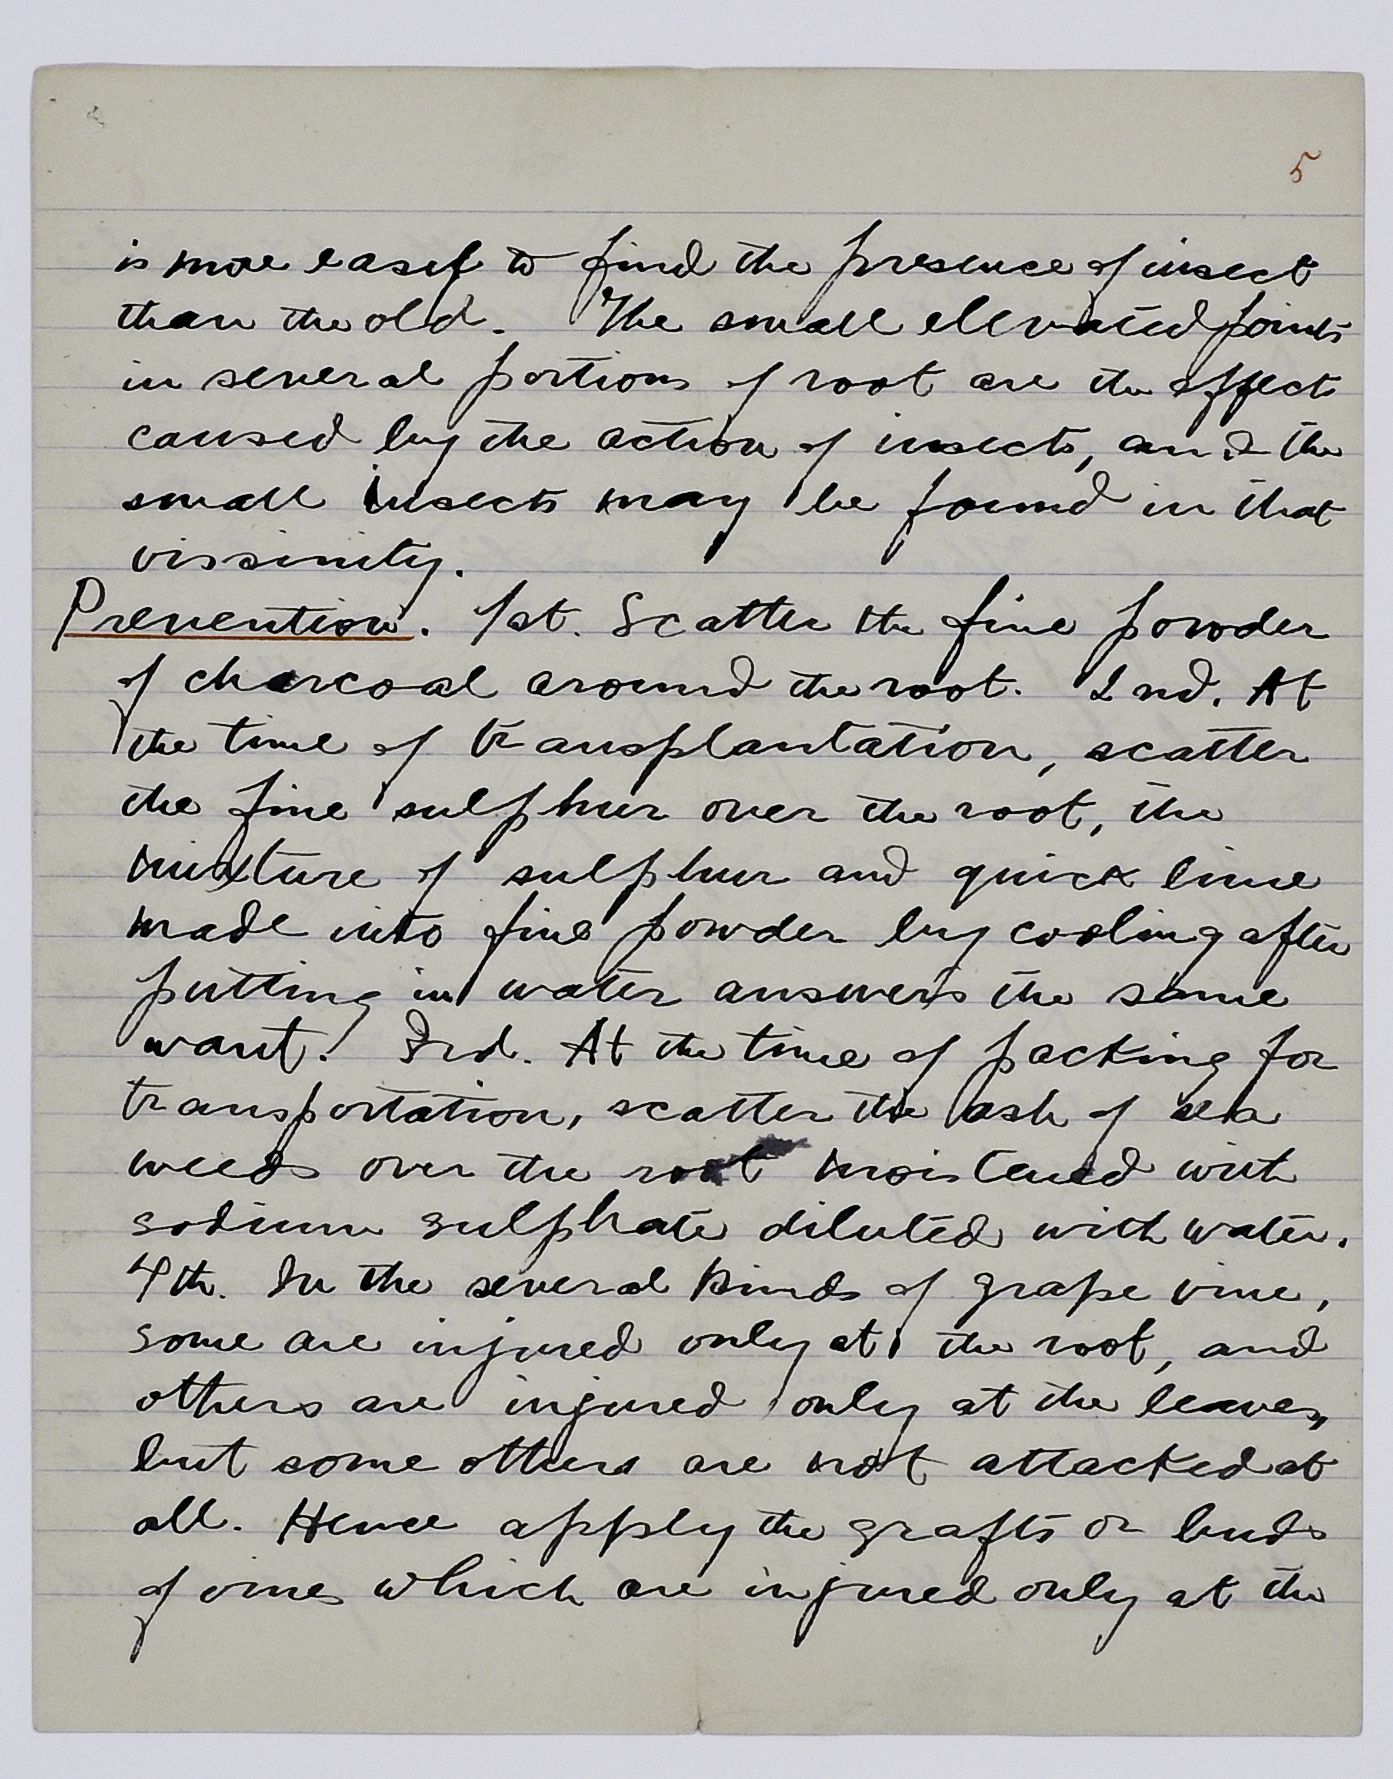 5
is more easy to find the presence of insect
than the old. The small elevated points
in several portions of root are the effects
caused by the action of insects, and the
small insects may be found in that
vissinity.
Prevention. 1st. Scatter the fine powder
of charcoal around the root. 2nd. At
the time of transplantation, scatter
the fine sulphur over the root, the
mixture of sulphur and quick lime
made into fine powder by cooling after
putting in water answers the same
want. 3rd. At the time of packing for
transportation, scatter the ash of sea
weeds over the root moistened with
sodium sulphate diluted with water.
4th. In the several kinds of grape vine,
some are injured only at the root, and
others are injured only at the leaves,
but some others are not attacked at
all. Hence apply the grafts or buds
of vines which are injured only at the